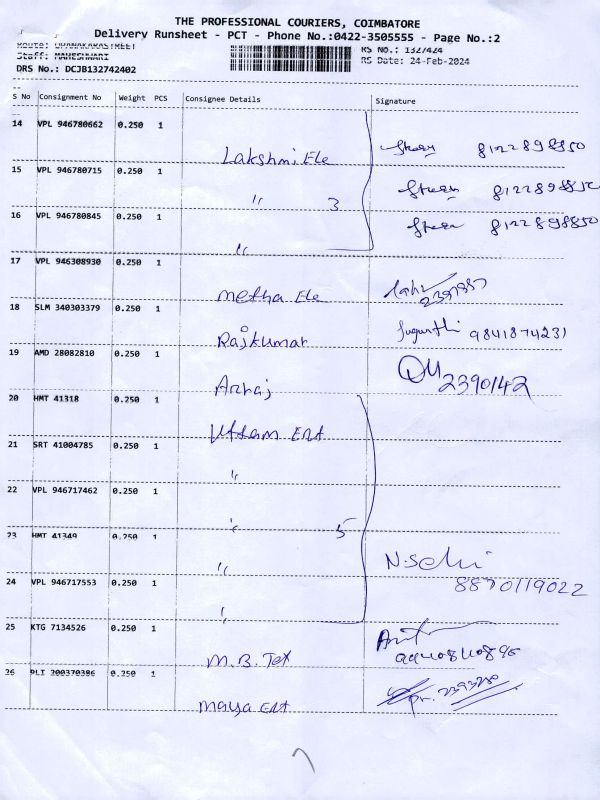 THE PROFESSIONAL COURIERS, COIMBATORE
Delivery Runsheet - PCT - Phone No.:0422-3505555 - Page No.:2
Staff: MAHESHWARI
RS No.: 132/424
DRS No.: DCJB132742402
RS Date: 24-Feb-2024
S No Consignment No Weight PCS Consignee Details Signature
14 VPL 946780662 0.250 1 Lakshmi Ele 8122898850
15 VPL 946780715 0.250 1 " 3 8122898850
16 VPL 946780845 0.250 1 " 8122898850
17 VPL 946308930 0.250 1 Metha Ele
18 SLM 340303379 0.250 1 Rajkumar 9841874231
19 AMD 28082810 0.250 1 2390142
20 HMT 41318 0.250 1 Uttam Ent
21 SRT 41004785 0.250 1 "
22 VPL 946717462 0.250 1 " 5
23 HMT 41349 0.250 1 "
24 VPL 946717553 0.250 1 " 8870119022
25 KTG 7134526 0.250 1 M.B. Tex
26 0.250 1 Maya Ent